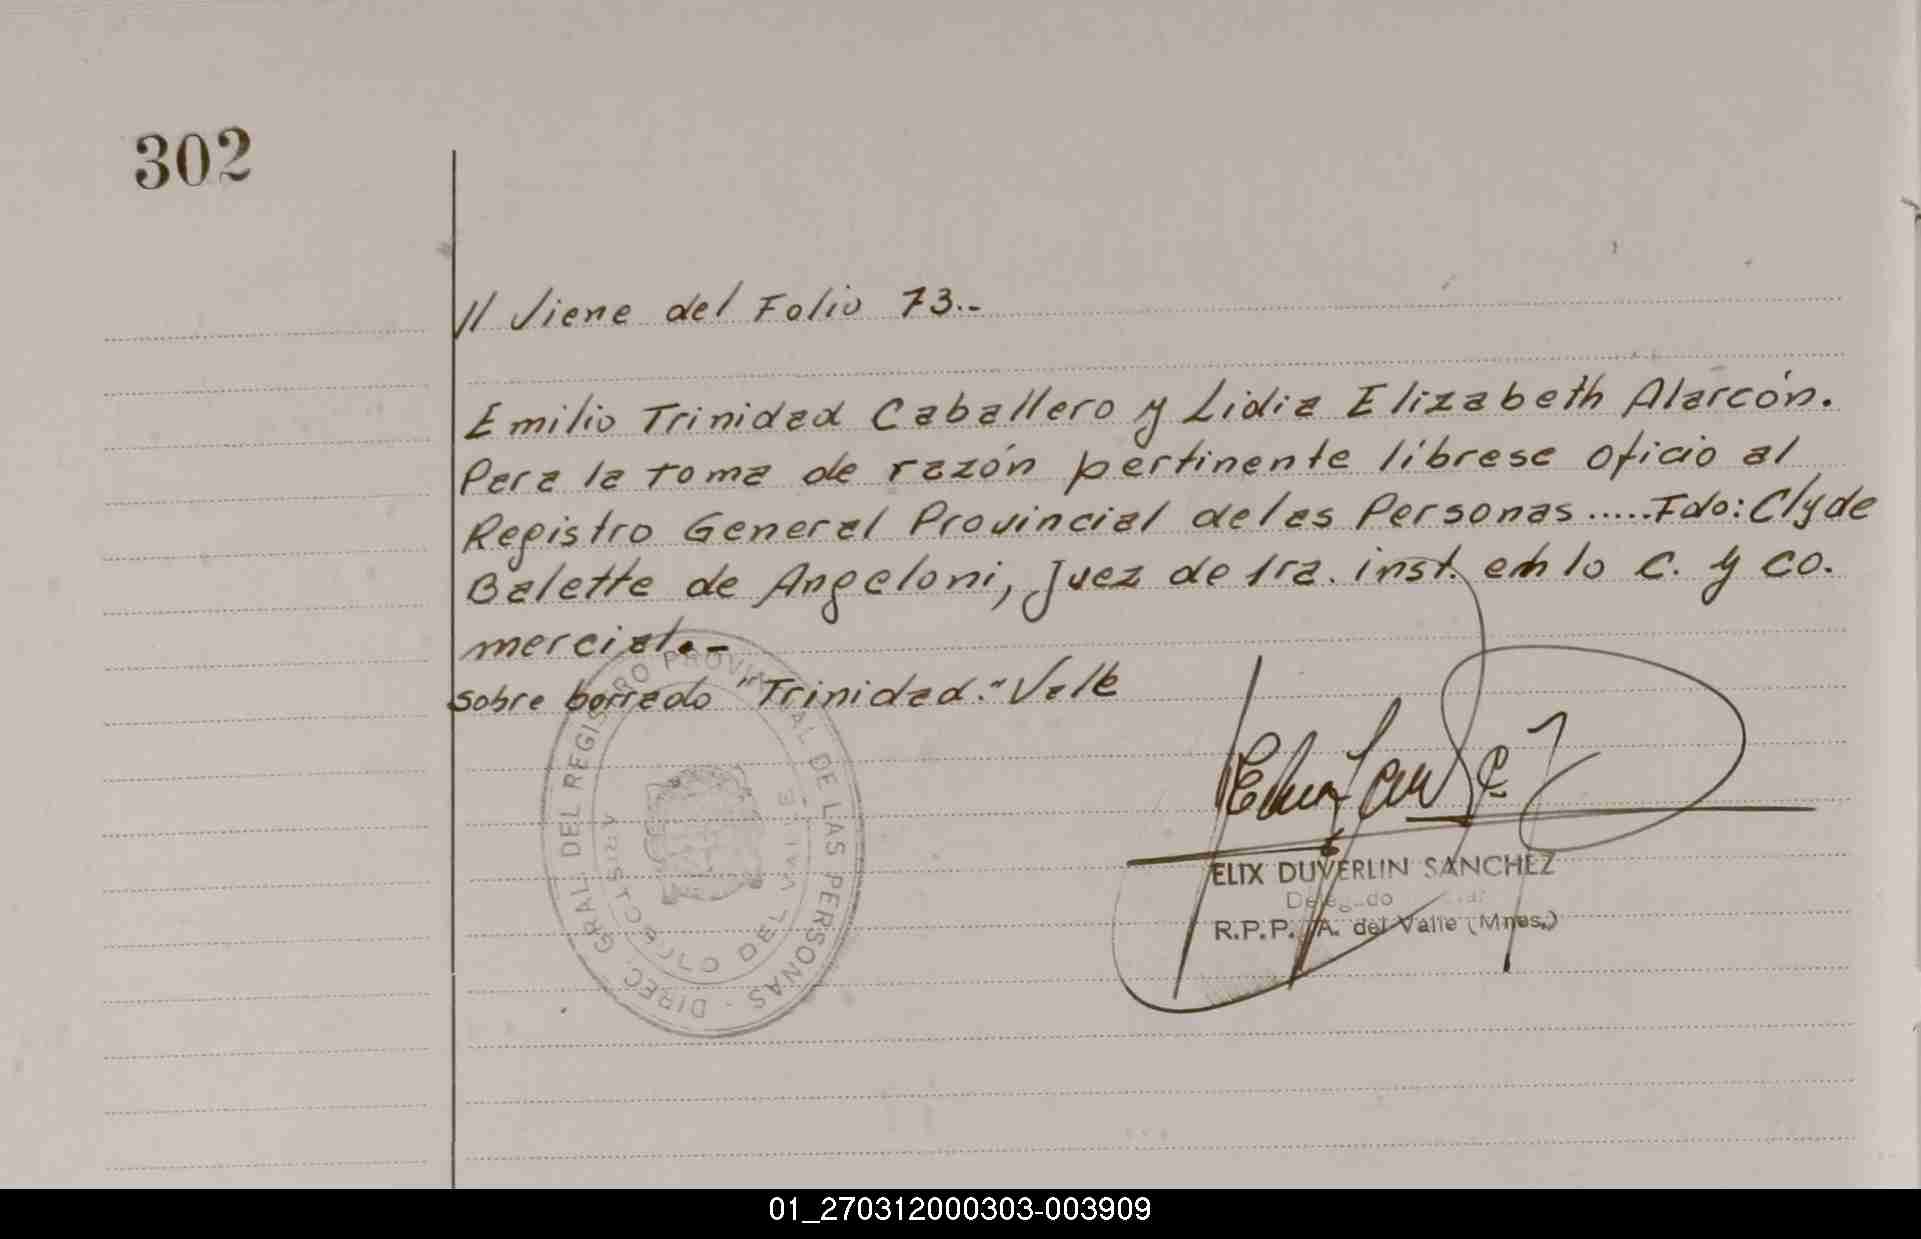 302
// Viene del Folio 73.-
Emilio Trinidad Caballero y Lidia Elizabeth Alarcón.
Para la toma de razón pertinente líbrese oficio al
Registro General Provincial de las Personas.....Fdo: Clyde
Balette de Angeloni, Juez de 1ra. inst. en lo C. y Co.
mercial.-
sobre borrado "Trinidad." Vale
DIREC. GRAL. DEL REGISTRO PROVINCIAL DE LAS PERSONAS -
DEL VALLE
ELIX DUVERLIN SANCHEZ
R.P.P. A. del Valle (Mnes.)
01_270312000303-003909